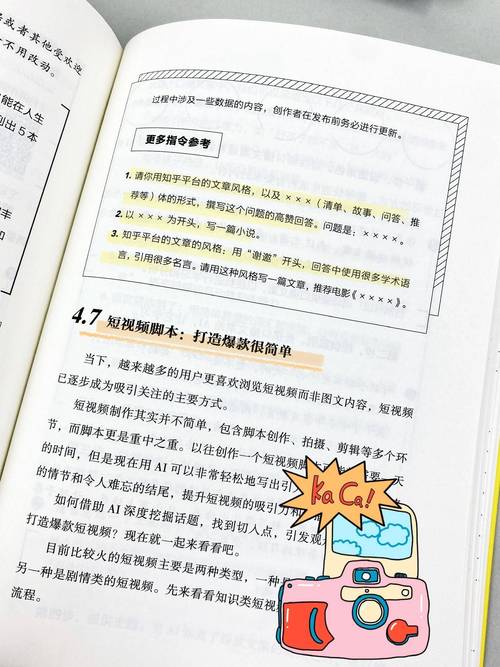 各或者其他受欢迎
不用改动。
能在人生
列出5本
过程中涉及一些数据的内容，创作者在发布前务必进行更新。
更多指令参考
1. 请你用知乎平台的文章风格，以及×××（清单、故事、问答、推
荐等）体的形式，撰写这个问题的高赞回答。问题是：××××。
2. 以×××为开头，写一篇小说。
3. 知乎平台的文章的风格：用“谢邀”开头，回答中使用很多学术语
言，引用很多名言。请用这种风格写一篇文章，推荐电影《××××》。
4.7 短视频脚本：打造爆款很简单
当下，越来越多的用户更喜欢浏览短视频而非图文内容，短视频
已逐步成为吸引关注的主要方式。
短视频制作其实并不简单，包含脚本创作、拍摄、剪辑等多个环
节，而脚本更是重中之重。以往创作一个短视频脚
天
的时间，但是现在用AI可以非常轻松地写出引
的情节和令人难忘的结尾，提升短视频的吸引力和
如何借助AI深度挖掘话题，找到切入点，引发观
打造爆款短视频？现在就一起来看看吧。
目前比较火的短视频主要是两种类型，一种
另一种是剧情类的短视频。先来看看知识类短视
流程。
KaCa!